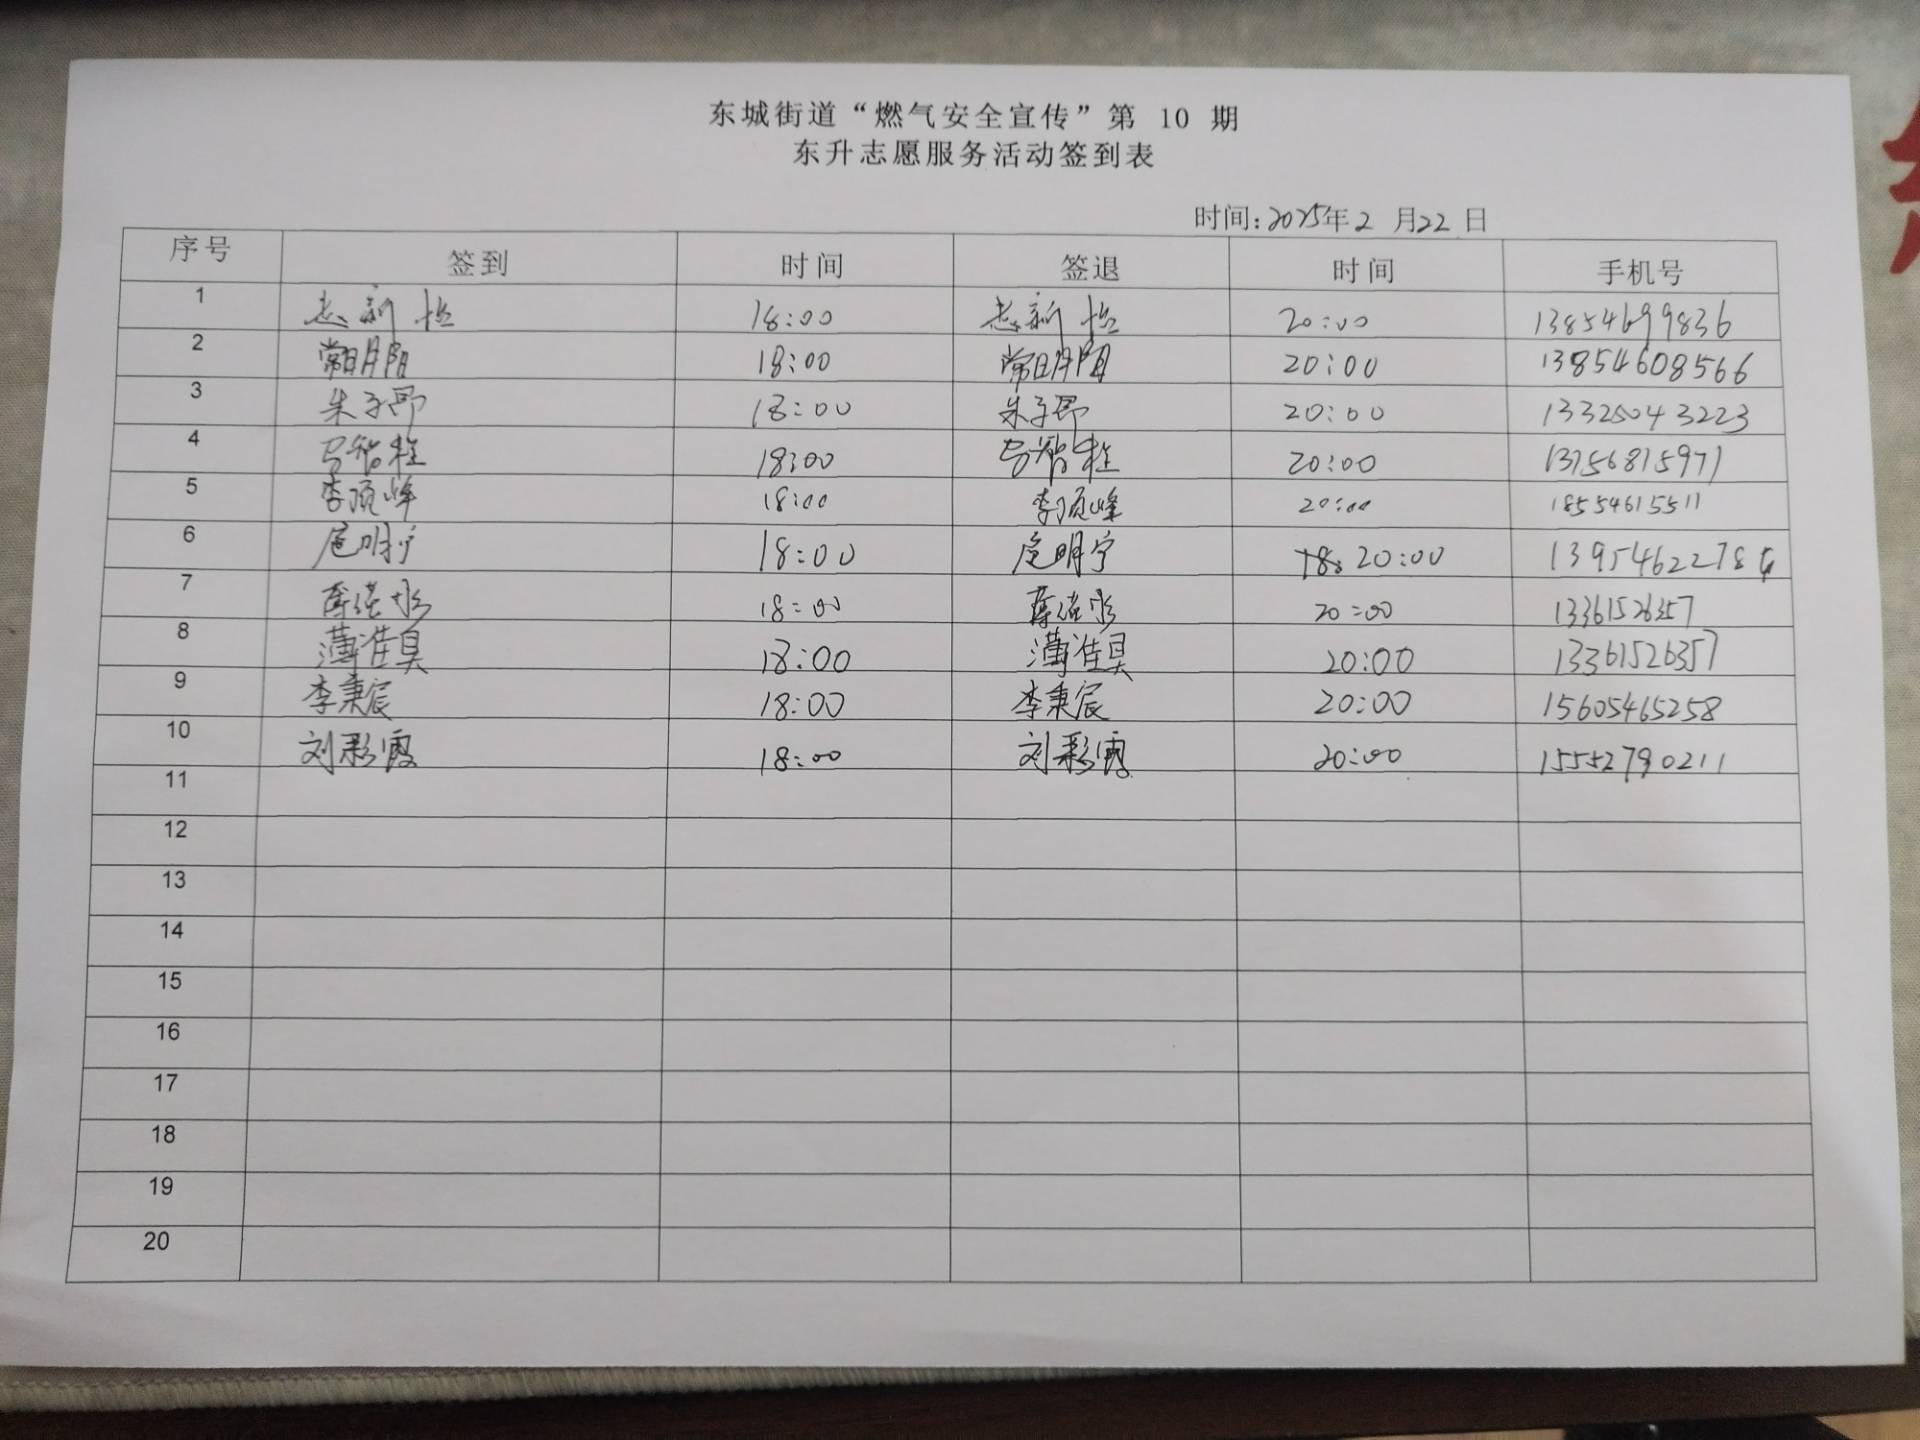 东城街道“燃气安全宣传”第 10 期
东升志愿服务活动签到表
时间:2025年2 月22日
序号 签到 时间 签退 时间 手机号
1 18:00 20:00 13854699836
2 常明阳 18:00 常明阳 20:00 13854608566
3 朱子昂 18:00 朱子昂 20:00
4 18:00 20:00 13756815971
5 李顶峰 18:00 李顶峰 20:00 18554615511
6 庞明宁 18:00 庞明宁 20:00
7 18:00 20:00 13361526357
8 18:00 20:00 13361526357
9 李秉宸 18:00 李秉宸 20:00 15605465258
10 刘彩霞 18:00 刘彩霞 20:00 15552790211
11
12
13
14
15
16
17
18
19
20